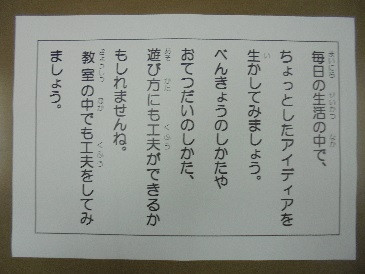 毎日の生活の中で、
ちょっとしたアイディアを
生かしてみましょう。
べんきょうのしかたや
おてつだいのしかた、
遊び方にも工夫ができるか
もしれませんね。
教室の中でも工夫をしてみ
ましょう。